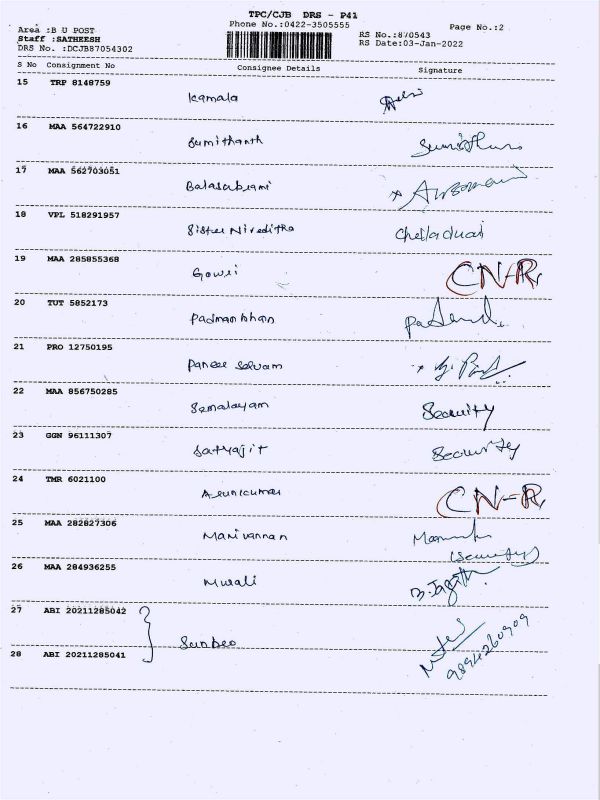 TPC/CJB DRS - P41
Phone No.:0422-3505555
Page No.:2
Area :B U POST
Staff :SATHEESH
DRS No. :DCJB87054302
RS No.:870543
RS Date:03-Jan-2022
S No Consignment No Consignee Details Signature
15 TRP 8148759
Kamala
16 MAA 564722910
Sumithanth
17 MAA 562703051
Balasubrami
18 VPL 518291957
Sister Niveditha Chelladuai
19 MAA 285855368
Gowri CN-R
20 TUT 5852173
Padmanabhan
21 PRO 12750195
Paneer Selvam
22 MAA 856750285
Semalayam Security
23 GGN 96111307
Satyajit Security
24 TMR 6021100
Arunkumar CN-R
25 MAA 282827306
Manivannan
(Security)
26 MAA 284936255
Murali
27 ABI 20211285042
Sundeo
9894260909
28 ABI 20211285041